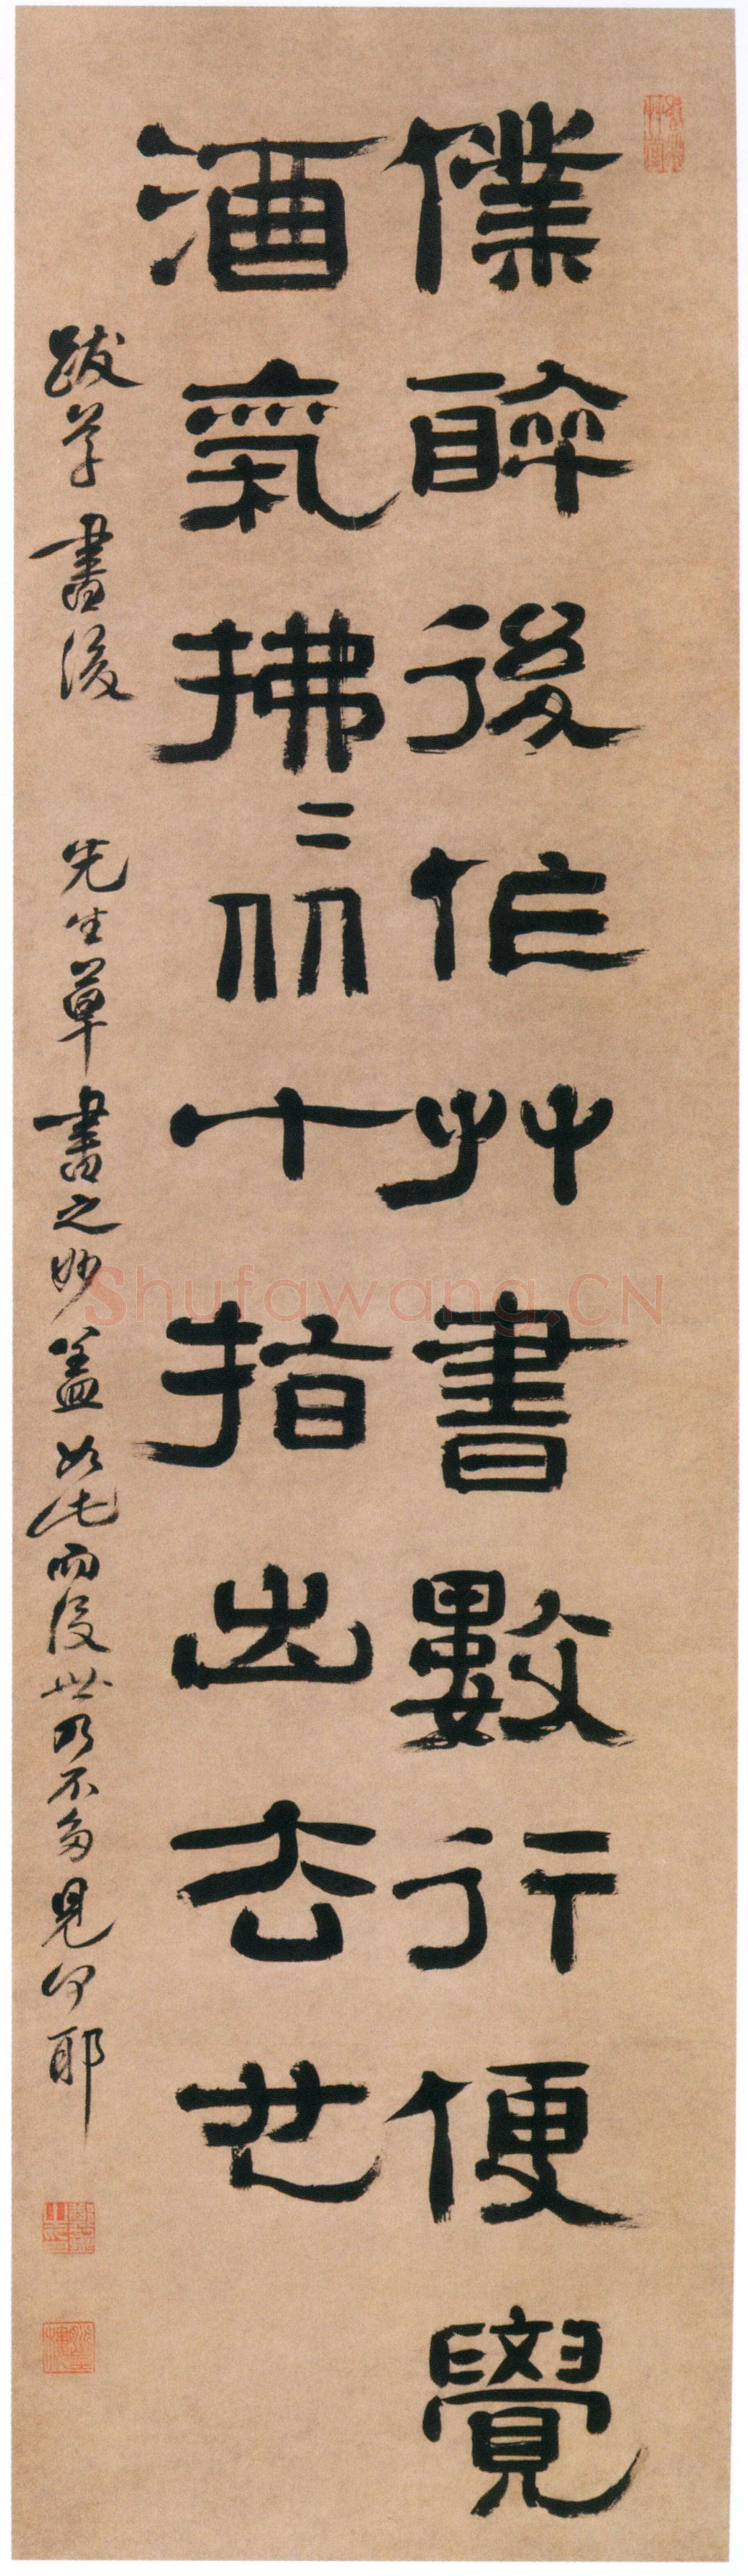 僕醉後作艸書數行便覺
酒氣拂二从十指出去也
跋草書後 先生草書之妙蓋如此而後世乃不多見何耶
Shufawang.CN